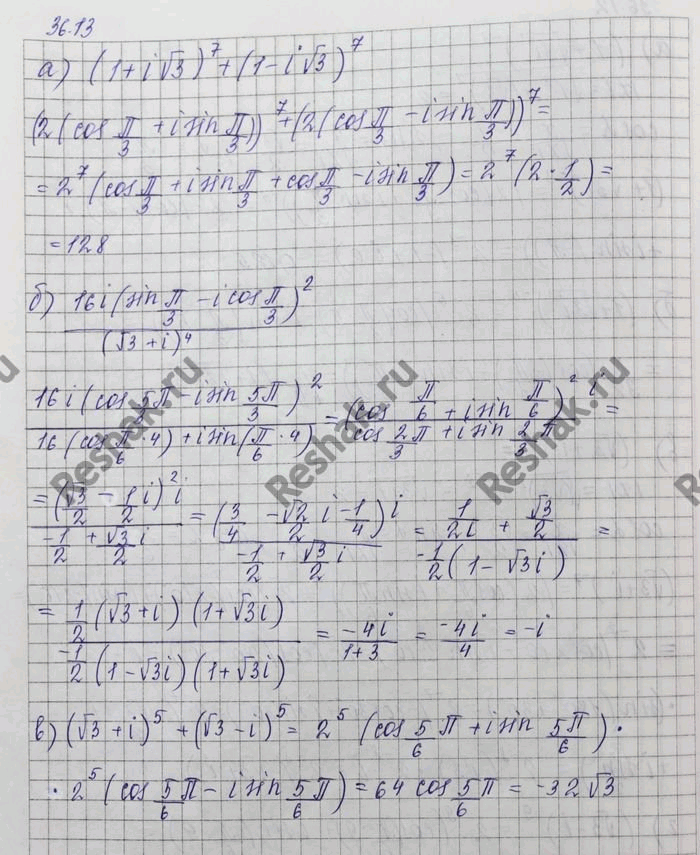 36.13
а) (1+i√3)⁷+(1-i√3)⁷
(2(cos π/3 + i sin π/3))⁷+(2(cos π/3 - i sin π/3))⁷=
=2⁷(cos π/3 + i sin π/3 + cos π/3 - i sin π/3) = 2⁷(2·1/2) =
=128
б) 16i(sin π/3 - i cos π/3)² / (√3+i)⁴
16i(cos 5π/3 - i sin 5π/3)² / 16(cos(π/6·4) + i sin(π/6·4)) = (cos π/6 + i sin π/6)² i / cos 2/3 π + i sin 2/3 π =
= (√3/2 - 1/2 i)² i / -1/2 + √3/2 i = (3/4 - √2/2 i - 1/4) i / -1/2 + √3/2 i = 1/2i + √3/2 / -1/2(1-√3i) =
= 1/2(√3+i)(1+√3i) / -1/2(1-√3i)(1+√3i) = -4i/1+3 = -4i/4 = -i
в) (√3+i)⁵+(√3-i)⁵= 2⁵ (cos 5/6 π + i sin 5π/6) ·
· 2⁵ (cos 5/6 π - i sin 5π/6) = 64 cos 5π/6 = -32√3
Reshak.ru
Reshak.ru
Reshak.ru